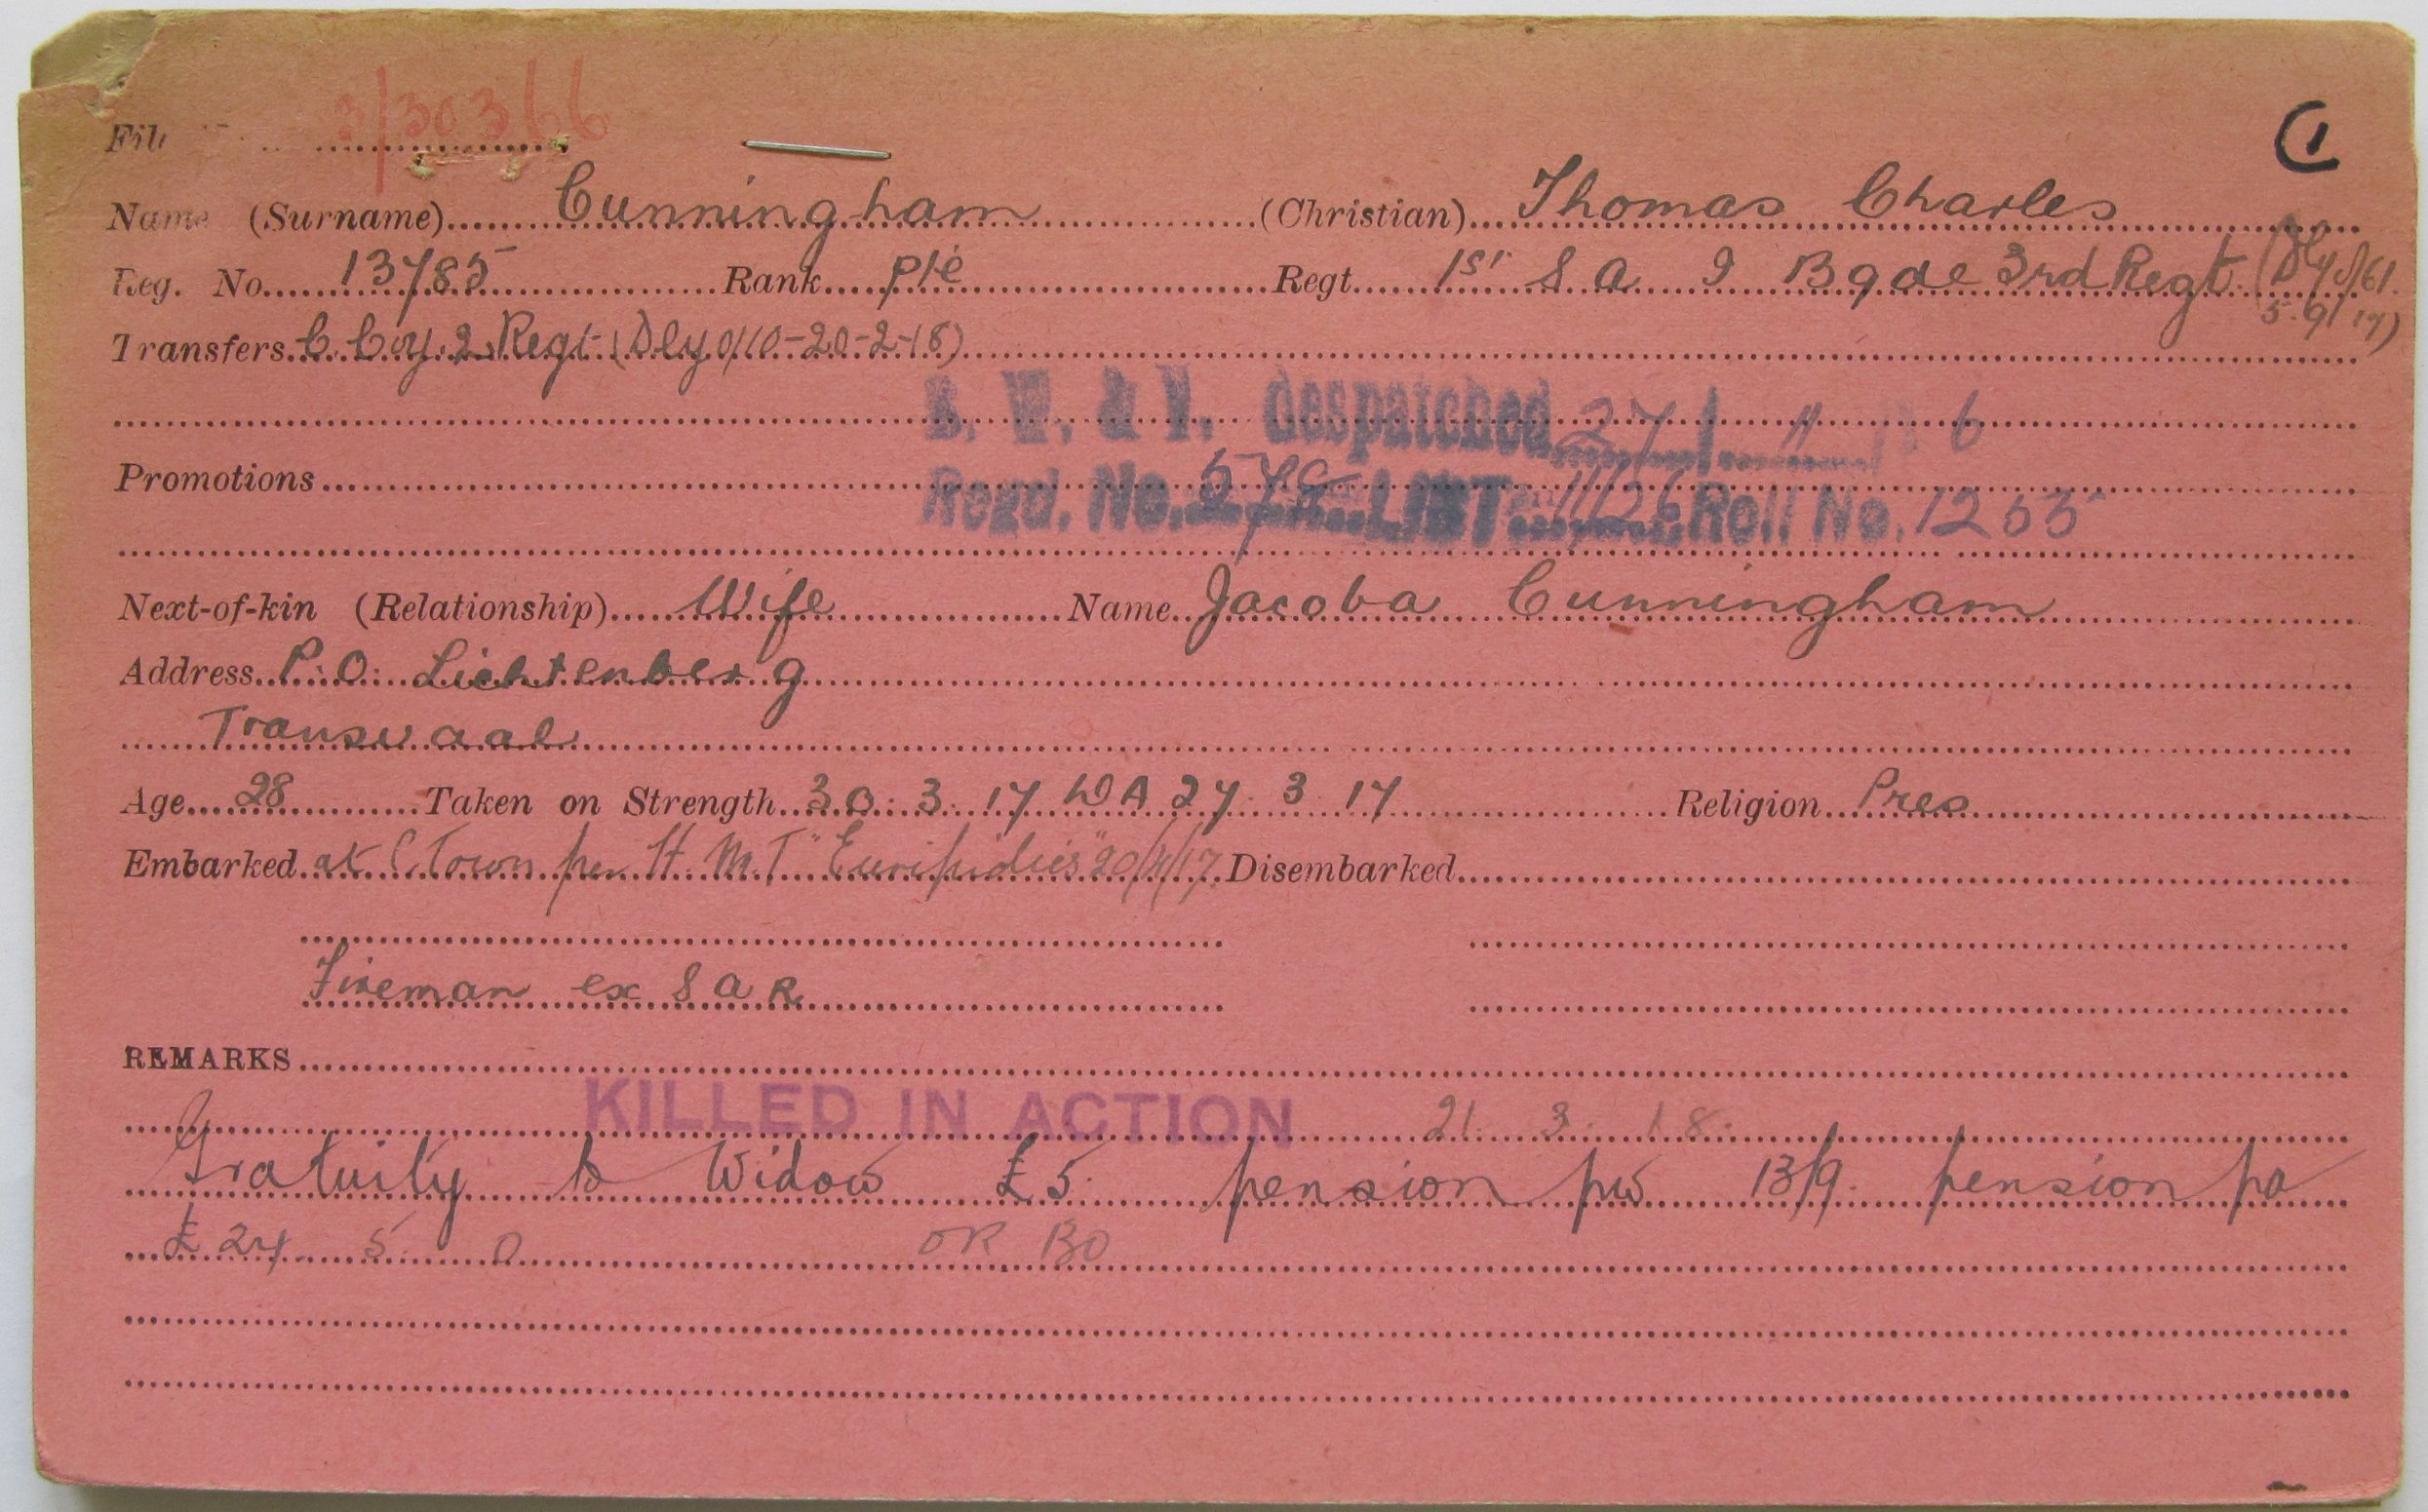 3/30366
File
C1
Name (Surname) Cunningham (Christian) Thomas Charles
Reg. No. 13785 Rank pte Regt. 1st S A I Bgde 3rd Regt (Dly O/61.
5.9.17)
Transfers C Coy. 2 Regt (Dly O/10-20-2-18)
B. W. & V. despatched 27/ 4
Promotions
Regd. No. LIST Roll No.
Next-of-kin (Relationship) Wife Name Jacoba Cunningham
Address P.O. Lichtenberg
Transvaal
Age 28 Taken on Strength 30. 3. 17 DA 27. 3 17 Religion Pres
Embarked at C Town per H.M.T "Euripidies" 20/4/17. Disembarked
Fireman ex S A R
REMARKS
KILLED IN ACTION 21. 3. 18.
Gratuity to Widow £5. pension pw 13/9. pension pa
£24 5. 0 OR BO